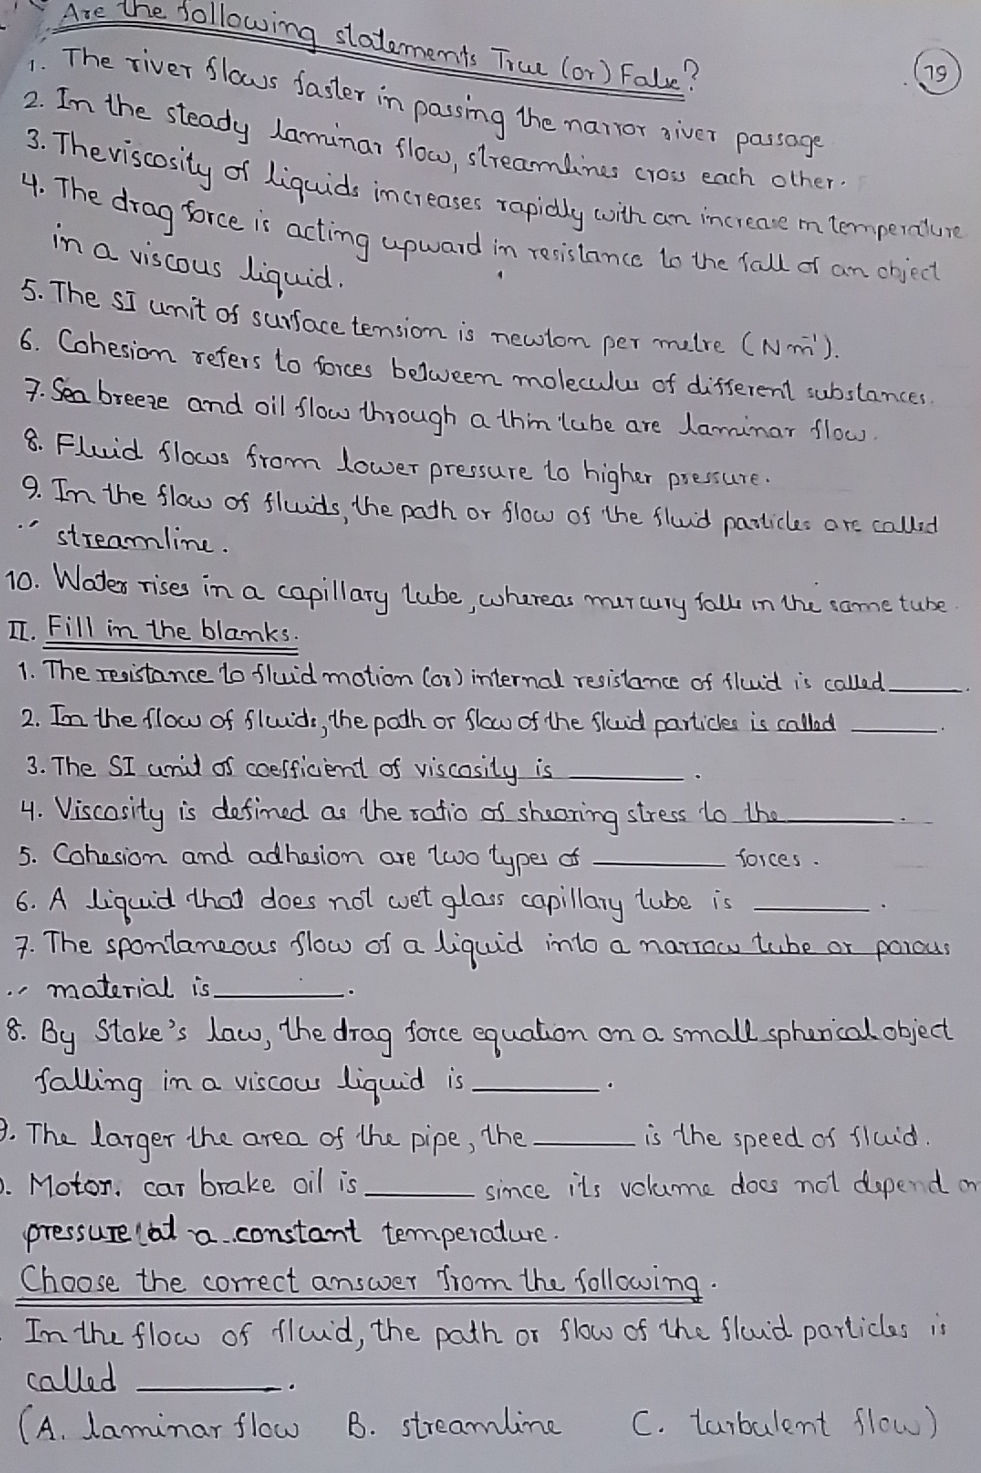 Are the following statements True (or) False?
79
1. The river flows faster in passing the narror river passage
2. In the steady laminar flow, streamlines cross each other.
3. The viscosity of liquids increases rapidly with an increase in temperature
4. The drag force is acting upward in resistance to the fall of an object
in a viscous liquid.
5. The SI unit of surface tension is newton per metre (Nm⁻¹).
6. Cohesion refers to forces between molecules of different substances.
7. Sea breeze and oil flow through a thin tube are laminar flow.
8. Fluid flows from lower pressure to higher pressure.
9. In the flow of fluids, the path or flow of the fluid particles are called
streamline.
10. Water rises in a capillary tube, whereas mercury falls in the same tube.
II. Fill in the blanks.
1. The resistance to fluid motion (or) internal resistance of fluid is called ______.
2. In the flow of fluids, the path or flow of the fluid particles is called ______.
3. The SI unit of coefficient of viscosity is ______.
4. Viscosity is defined as the ratio of shearing stress to the ______.
5. Cohesion and adhesion are two types of ______ forces.
6. A liquid that does not wet glass capillary tube is ______.
7. The spontaneous flow of a liquid into a narrow tube or porous
material is ______.
8. By Stoke's law, the drag force equation on a small spherical object
falling in a viscous liquid is ______.
9. The larger the area of the pipe, the ______ is the speed of fluid.
. Motor. car brake oil is ______ since its volume does not depend on
pressure at a constant temperature.
Choose the correct answer from the following.
. In the flow of fluid, the path or flow of the fluid particles is
called ______.
(A. laminar flow B. streamline C. turbulent flow)